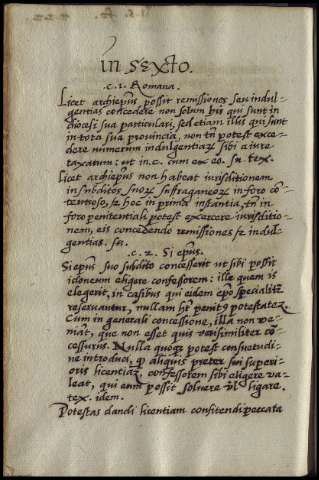 in sexto.
c. 1. Romana.
Licet archiepus possit remissiones seu indul-
gentias concedere non solum his qui sunt in
diocesi sua particulari, sed etiam illis qui sunt
in tota sua provincia, non tñ potest exce-
dere numerum indulgentiarꝝ sibi a iure
taxatum: ut in. c. cum ex eo. su. tex.
Licet archiepus non habeat iurisditionem
in subditos suorꝝ suffraganeorꝝ in foro cõ-
tentioso, hoc in prima instantia, tñ in
foro penitentiali potest exercere iurisditio-
nem, eis concedendo remissiones indul-
gentias.
c. 2. Si epus.
Si epus suo subdito concesserit ut sibi possit
idoneum eligere confessorem: ille quem is
elegerit, in casibus qui eidem epo specialiter
reseruantur, nullam hẽt penitꝰ potestatem.
Cum in generali concessione, illa non ve-
niãt, que non esset quis verisimiliter cõ-
cessurus. Nulla quoqꝫ potest consuetudi-
ne introduci, ꝙ aliquis preter sui superi-
oris licentiam, confessorem sibi eligere va-
leat, qui eum possit soluere vel ligare.
tex. idem.
Potestas dandi licentiam confitendi peccata